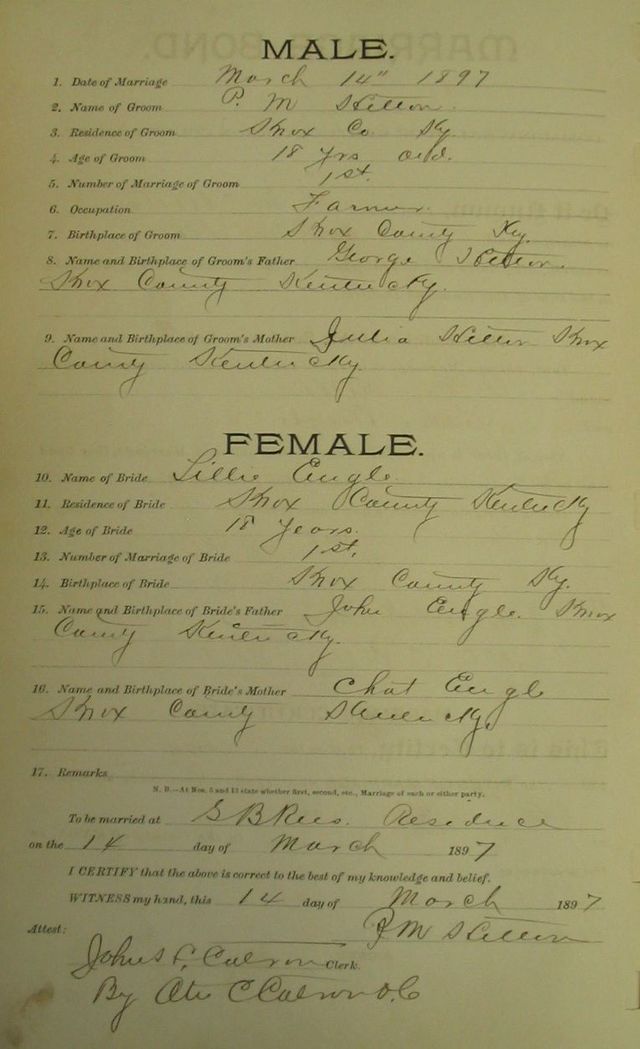 MALE.
1. Date of Marriage March 14" 1897
2. Name of Groom P. M
3. Residence of Groom Knox Co Ky
4. Age of Groom 18 yrs old.
5. Number of Marriage of Groom 1st.
6. Occupation Farmer
7. Birthplace of Groom Knox County Ky.
8. Name and Birthplace of Groom's Father George
Knox County Kentucky.
9. Name and Birthplace of Groom's Mother Julia Knox
County Kentucky
FEMALE.
10. Name of Bride Lillie Engle
11. Residence of Bride Knox County Kentucky
12. Age of Bride 18 years.
13. Number of Marriage of Bride 1st.
14. Birthplace of Bride Knox County Ky.
15. Name and Birthplace of Bride's Father John Engle. Knox
County Kentucky.
16. Name and Birthplace of Bride's Mother Engle
Knox County Kentucky.
17. Remarks
N. B.—At Nos. 5 and 13 state whether first, second, etc., Marriage of each or either party.
To be married at G B Residence
on the 14 day of March 1897
I CERTIFY that the above is correct to the best of my knowledge and belief.
WITNESS my hand, this 14 day of March 1897
P M
Attest:
Clerk.
By D.C